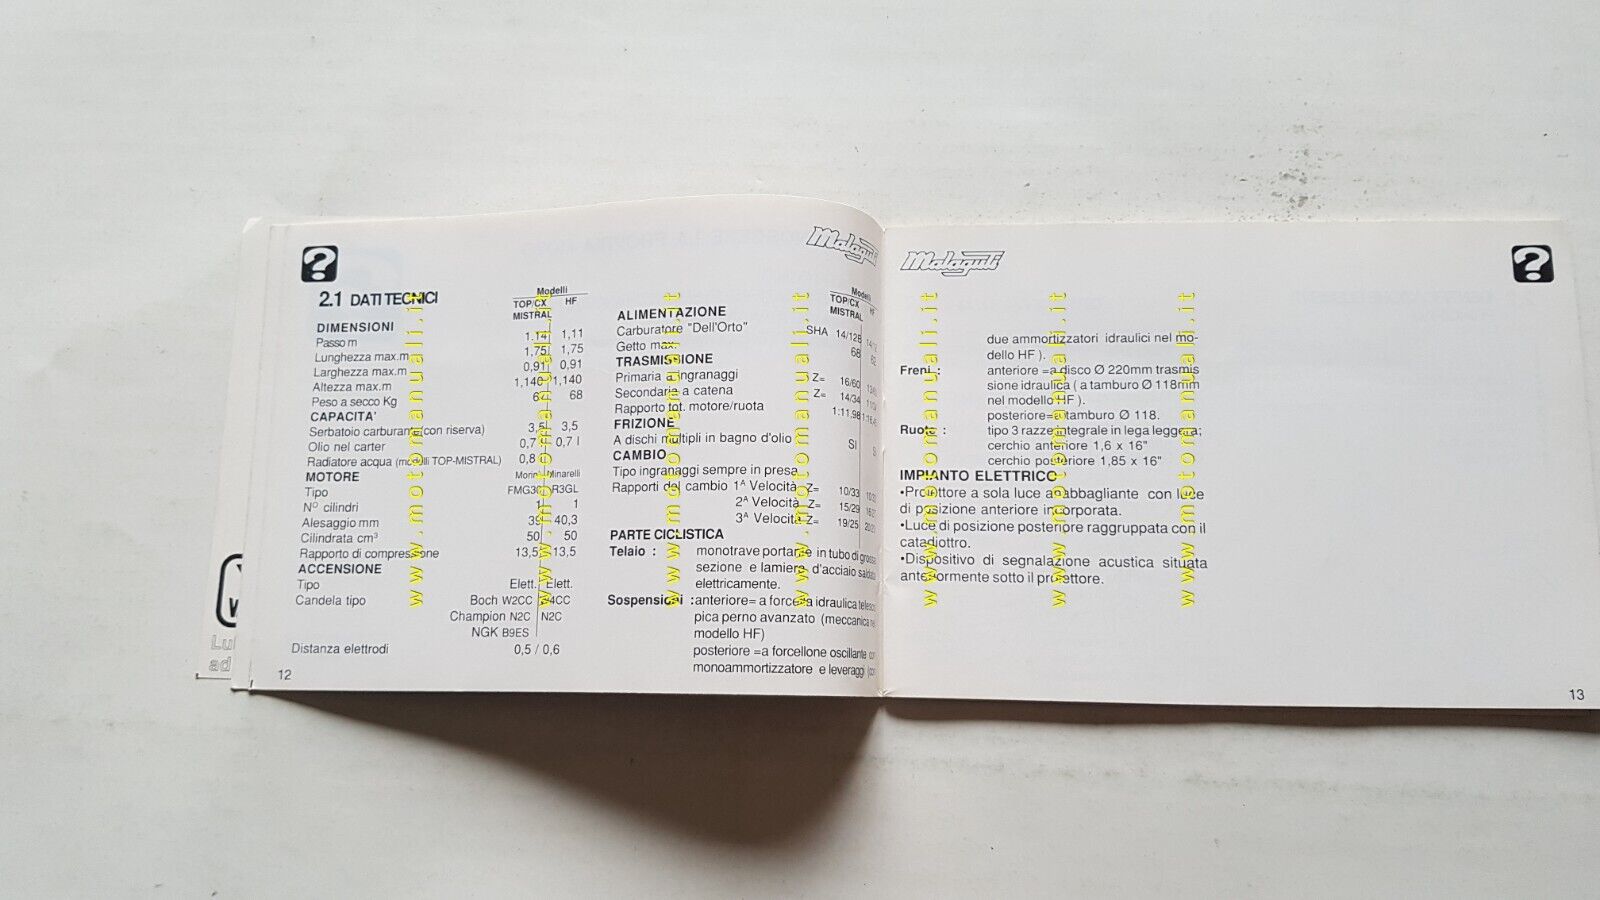 Malaguti
2.1 DATI TECNICI
Modelli
TOP/CX HF
MISTRAL
DIMENSIONI
Passo m 1.14 1,11
Lunghezza max.m 1,75 1,75
Larghezza max.m 0,91 0,91
Altezza max.m 1,140 1,140
Peso a secco Kg 68
CAPACITA'
Serbatoio carburante (con riserva) 3,5 3,5
Olio nel carter 0,7 0,7 l
Radiatore acqua (modelli TOP-MISTRAL) 0,8
MOTORE Morini Minarelli
Tipo R3GL
N° cilindri 1 1
Alesaggio mm 39 40,3
Cilindrata cm³ 50 50
Rapporto di compressione 13,5 13,5
ACCENSIONE
Tipo Elett. Elett.
Candela tipo Boch W2CC W4CC
Champion N2C N2C
NGK B9ES
Distanza elettrodi 0,5 / 0,6
12
Modelli
TOP/CX HF
MISTRAL
ALIMENTAZIONE
Carburatore "Dell'Orto" SHA 14/12B
Getto max. 68 62
TRASMISSIONE
Primaria a ingranaggi Z= 16/60
Secondaria a catena Z= 14/34
Rapporto tot. motore/ruota 1:11.98
FRIZIONE
A dischi multipli in bagno d'olio SI
CAMBIO
Tipo ingranaggi sempre in presa
Rapporti del cambio 1ᴬ Velocità Z= 10/33
2ᴬ Velocità Z= 15/29
3ᴬ Velocità Z= 19/25
PARTE CICLISTICA
Telaio : monotrave portante in tubo di grossa
sezione e lamiera d'acciaio saldato
elettricamente.
Sospensioni : anteriore= a forcella idraulica telesco
pica perno avanzato (meccanica nel
modello HF)
posteriore =a forcellone oscillante con
monoammortizzatore e leveraggi (con
Malaguti
due ammortizzatori idraulici nel mo-
dello HF ).
Freni : anteriore =a disco Ø 220mm trasmis
sione idraulica ( a tamburo Ø 118mm
nel modello HF ).
posteriore=a tamburo Ø 118.
Ruote : tipo 3 razze integrale in lega leggera;
cerchio anteriore 1,6 x 16"
cerchio posteriore 1,85 x 16"
IMPIANTO ELETTRICO
•Proiettore a sola luce anabbagliante con luce
di posizione anteriore incorporata.
•Luce di posizione posteriore raggruppata con il
catadiottro.
•Dispositivo di segnalazione acustica situata
anteriormente sotto il proiettore.
13
www.motomanuali.it
www.motomanuali.it
www.motomanuali.it
www.motomanuali.it
www.motomanuali.it
www.motomanuali.it
www.motomanuali.it